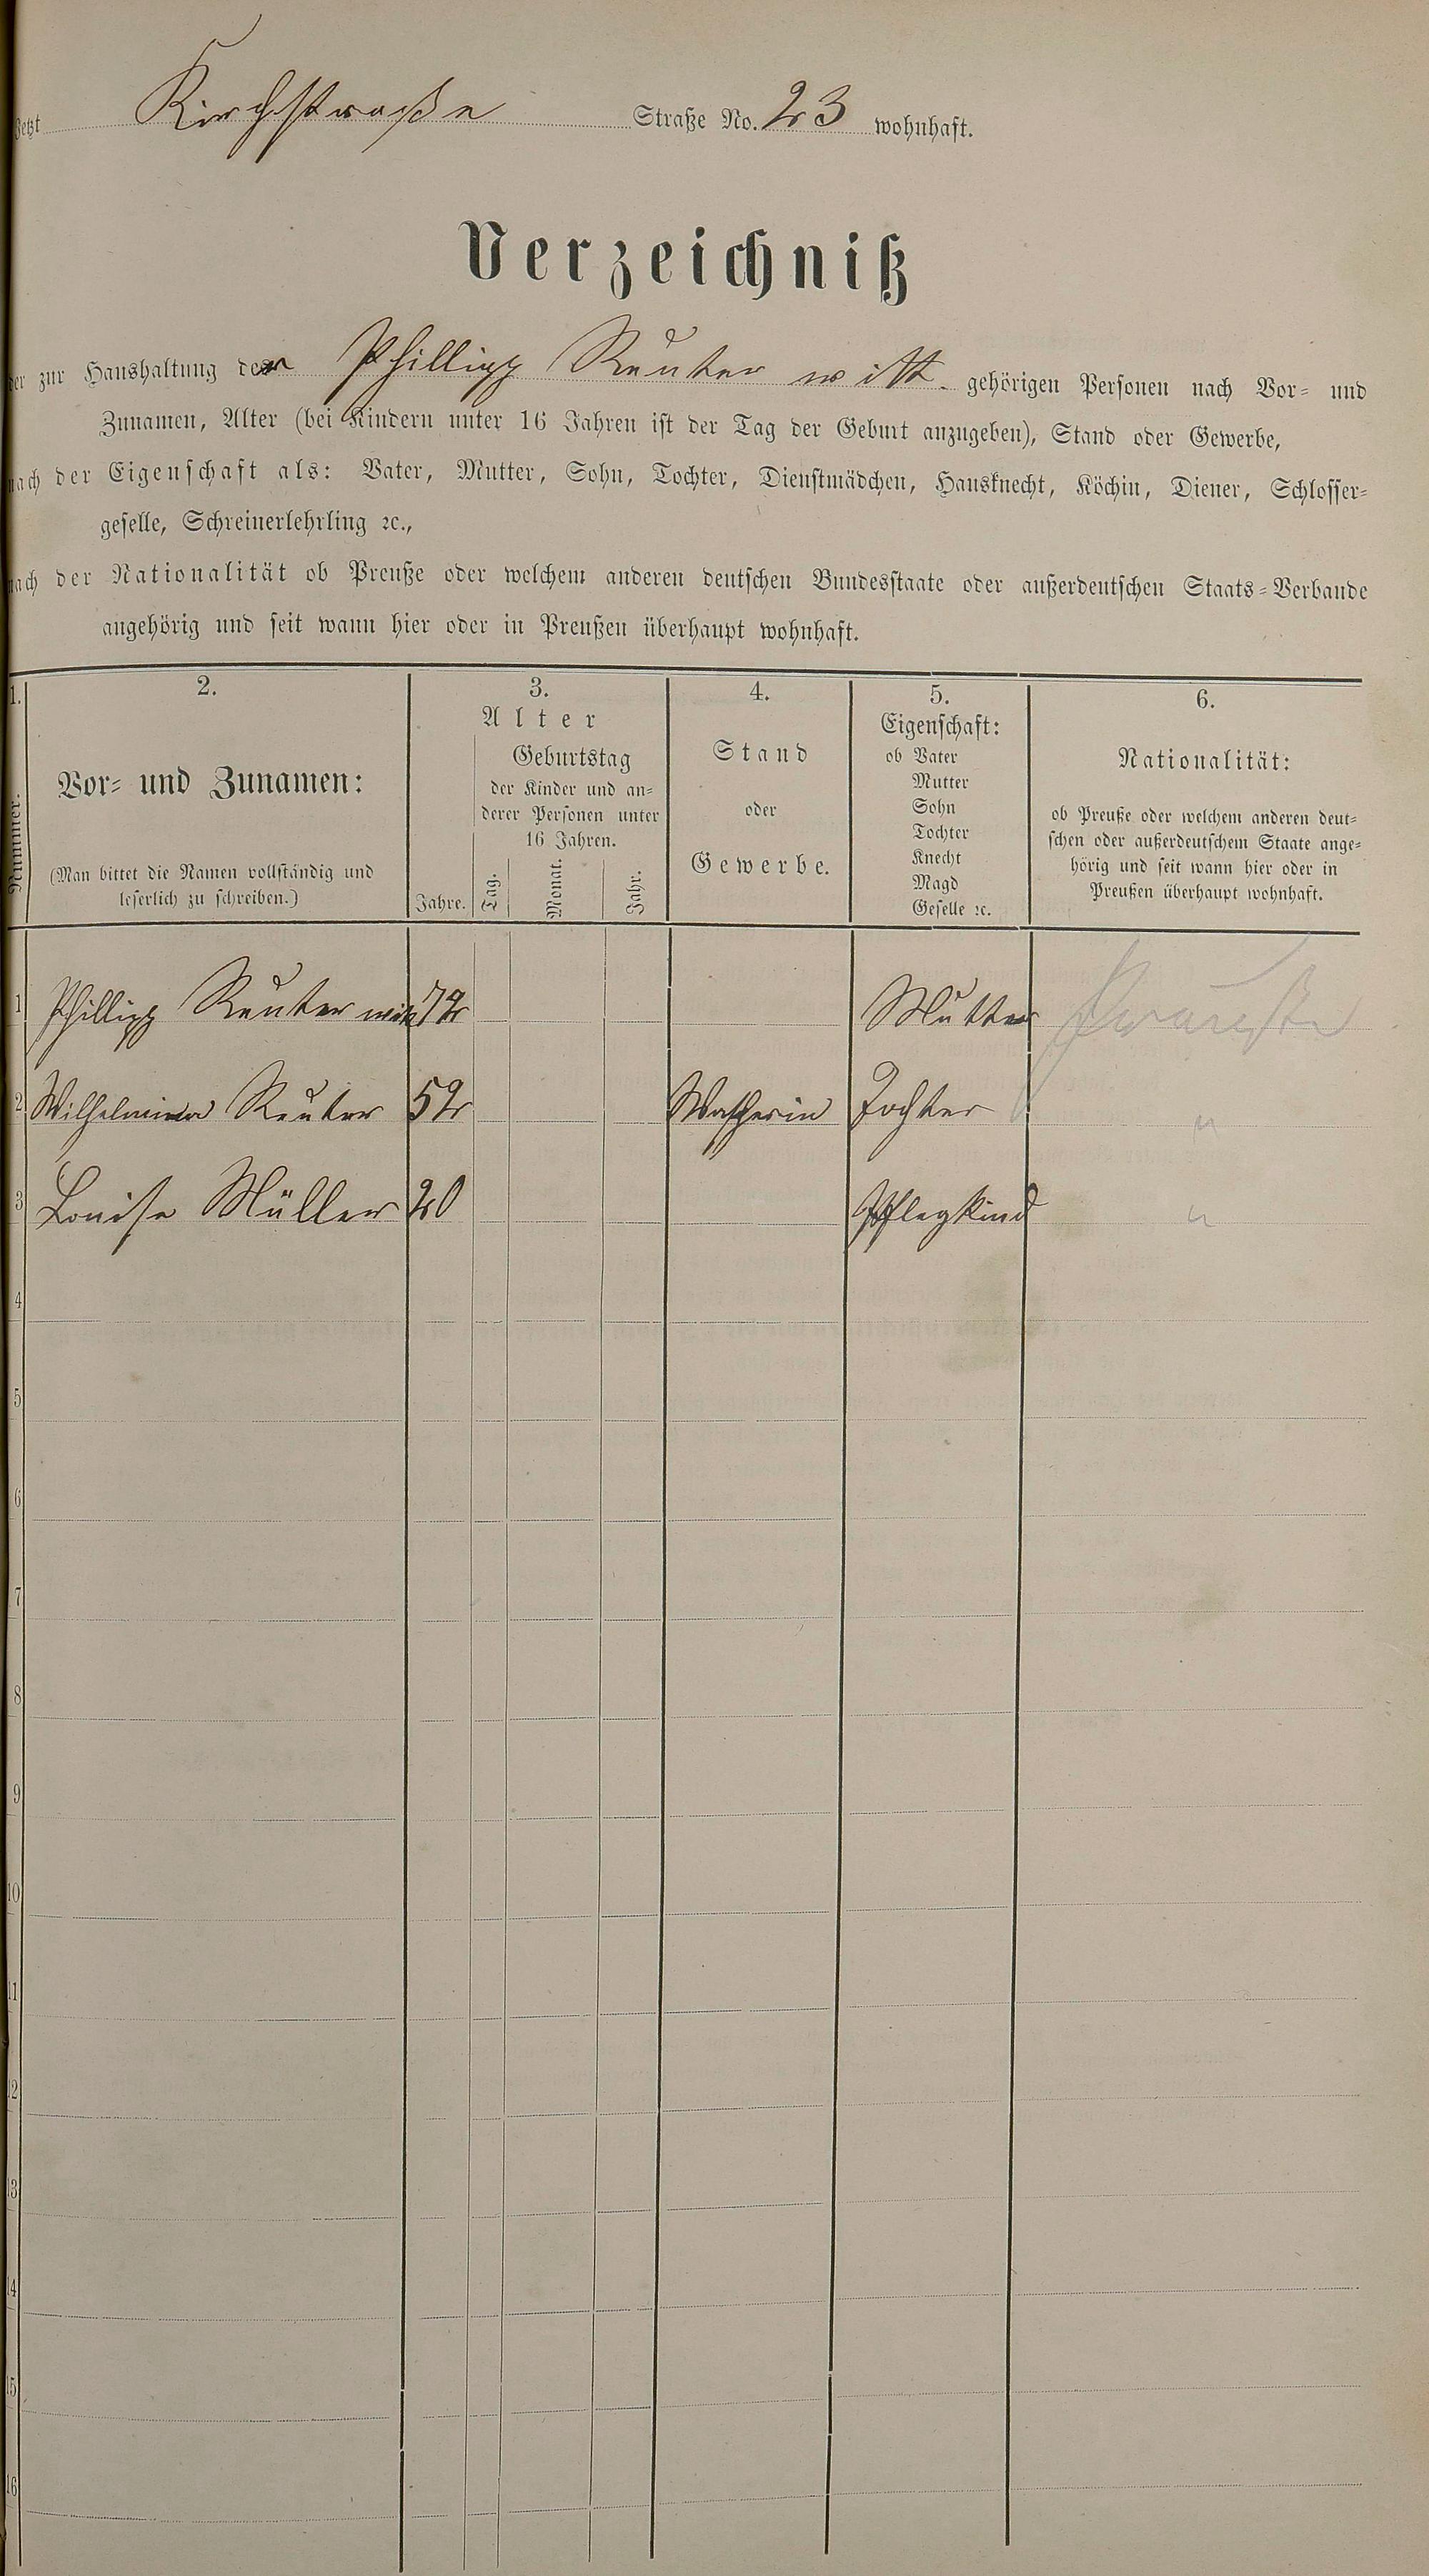 Jetzt Kirchstraße Straße No. 23 wohnhaft.
Verzeichniß
der zur Haushaltung der Phillipp Reuter witt. gehörigen Personen nach Vor= und
Zunamen, Alter (bei Kindern unter 16 Jahren ist der Tag der Geburt anzugeben), Stand oder Gewerbe,
nach der Eigenschaft als: Vater, Mutter, Sohn, Tochter, Dienstmädchen, Hausknecht, Köchin, Diener, Schlosser=
geselle, Schreinerlehrling ꝛc.,
nach der Nationalität ob Preuße oder welchem anderen deutschen Bundesstaate oder außerdeutschen Staats=Verbande
angehörig und seit wann hier oder in Preußen überhaupt wohnhaft.
1. 2. 3. 4. 5. 6.
Nummer.
Vor= und Zunamen:
(Man bittet die Namen vollständig und
leserlich zu schreiben.)
Alter
Jahre.
Geburtstag
der Kinder und an=
derer Personen unter
16 Jahren.
Tag. Monat. Jahr.
Stand
oder
Gewerbe.
Eigenschaft:
ob Vater
Mutter
Sohn
Tochter
Knecht
Magd
Geselle ꝛc.
Nationalität:
ob Preuße oder welchem anderen deut=
schen oder außerdeutschem Staate ange=
hörig und seit wann hier oder in
Preußen überhaupt wohnhaft.
1 Phillipp Reuter witt Mutter
2 Wilhelmina Reuter 52 Wascherin Tochter "
3 Louise Müller 20 Pflegkind "
4
5
6
7
8
9
10
11
12
13
14
15
16